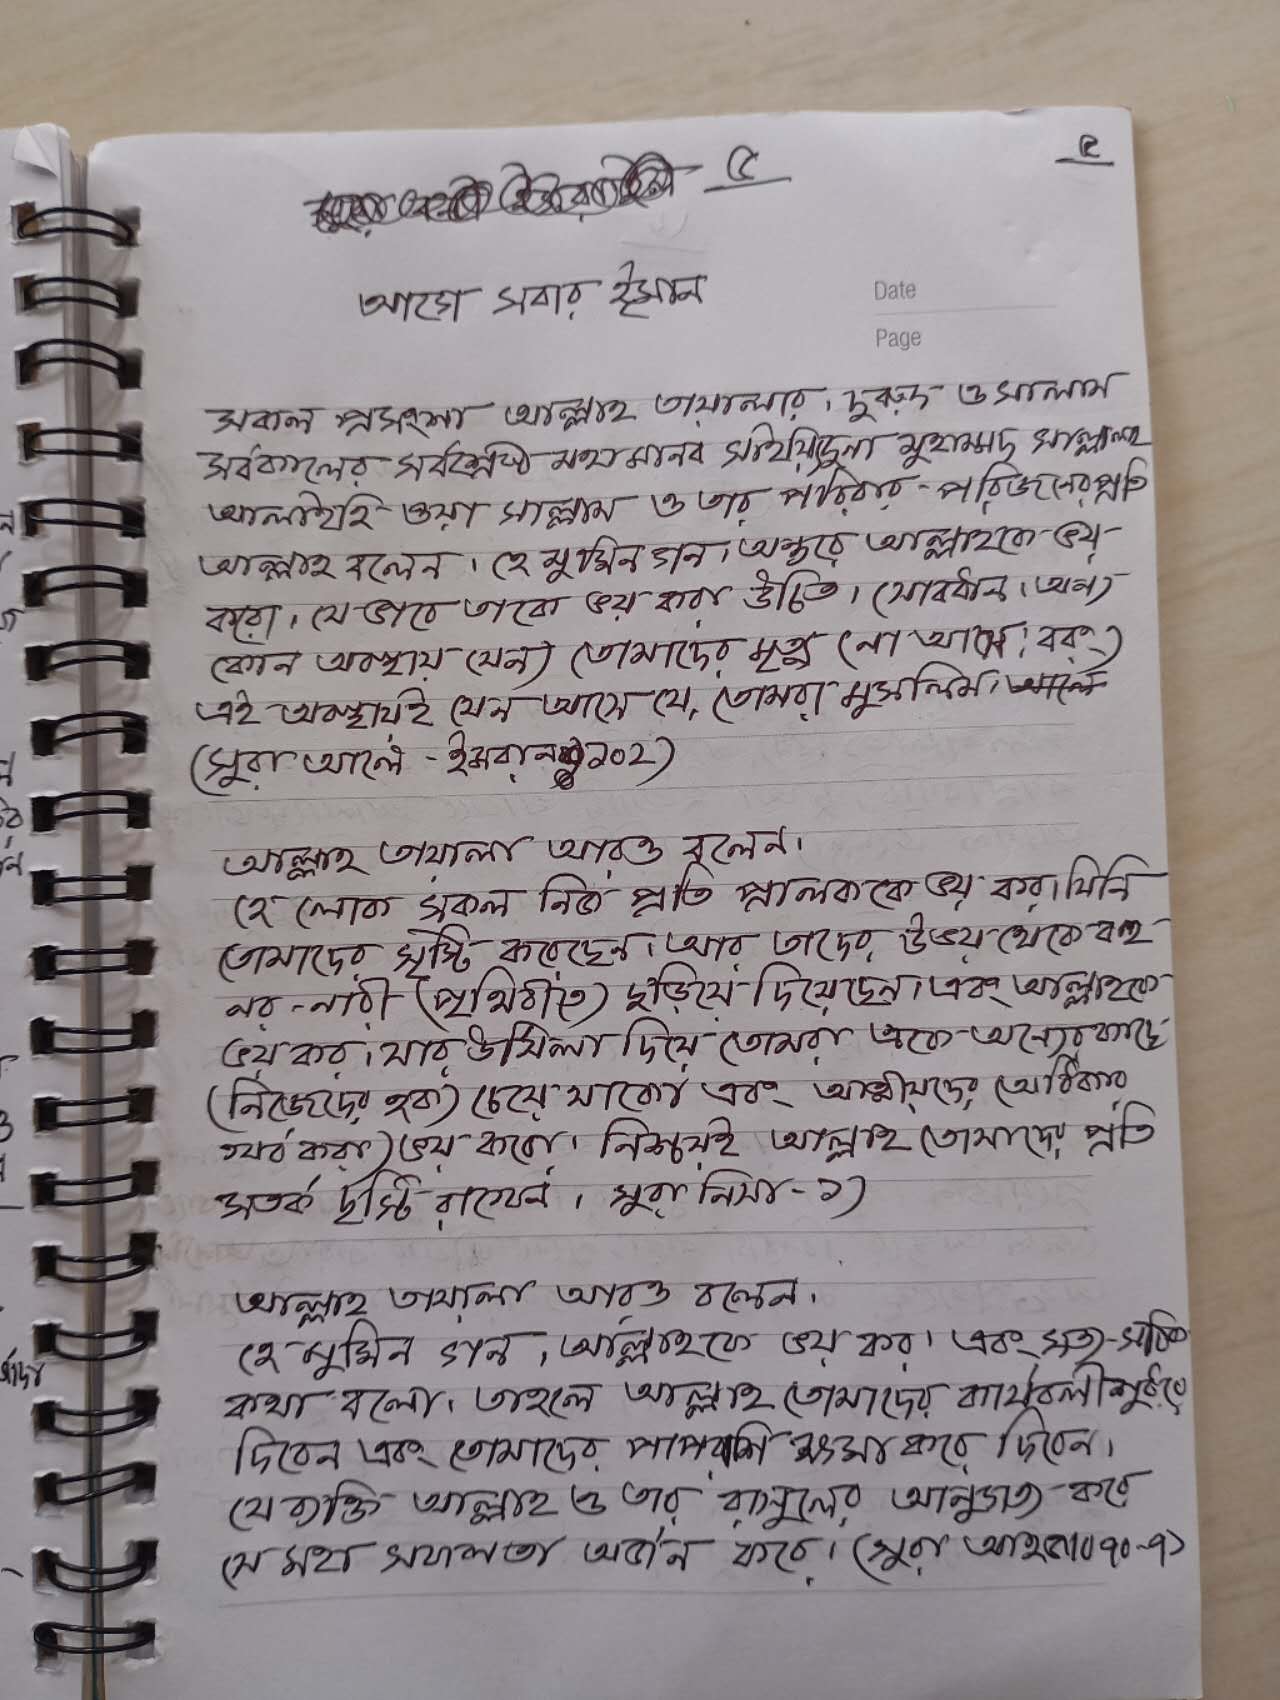 ৫
৫
আগে সবার ইমান
Date
Page
সকল প্রসংশা আল্লাহ তায়ালার। দুরুদ ও সালাম
সর্বকালের সর্বশ্রেষ্ঠ মহামানব সাইয়িদুনা মুহাম্মদ সাল্লালাহু
আলাইহি ওয়া সাল্লাম ও তার পরিবার-পরিজনের প্রতি
আল্লাহ বলেন। হে মুমিন গন, অন্তরে আল্লাহকে ভয়
করো। যে ভাবে তাকে ভয় করা উচিত। (সাবধান। অন্য
কোন অবস্থায় যেন) তোমাদের মৃত্যু (না আসে। বরং)
এই অবস্থায়ই যেন আসে যে, তোমরা মুসলিম। আলে
(সুরা আলে-ইমরান ১০২)
আল্লাহ তায়ালা আরও বলেন।
হে লোক সকল নিজ প্রতি পালককে ভয় কর। যিনি
তোমাদের সৃস্টি করেছেন। আর তাদের উভয় থেকে বহু
নর-নারী (পৃথিবীতে) ছড়িয়ে দিয়েছেন। এবং আল্লাহকে
ভয় কর। যার উসিলা দিয়ে তোমরা একে অন্যের কাছে
(নিজেদের হক) চেয়ে থাকো এবং আত্মীয়দের (অধিকার
খর্ব করা) ভয় করো। নিশ্চয়ই আল্লাহ তোমাদের প্রতি
সতর্ক দৃস্টি রাখেন। সুরা নিসা-১)
আল্লাহ তায়ালা আরও বলেন।
হে মুমিন গন, আল্লাহকে ভয় কর। এবং সত্য-সঠিক
কথা বলো। তাহলে আল্লাহ তোমাদের কার্যবলী শুধরে
দিবেন এবং তোমাদের পাপরাশি ক্ষমা করে দিবেন।
যে ব্যক্তি আল্লাহ ও তার রাসুলের আনুগত্য করে
সে মহা সফলতা অর্জন করে। (সুরা আহজাব ৭০-৭১